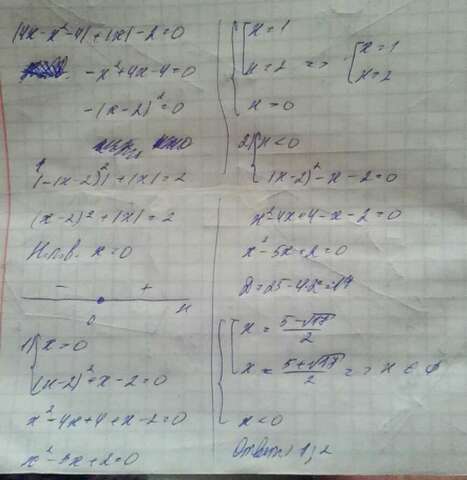 |4x-x²-4|+|x|-2=0
-x²+4x-4=0
-(x-2)²=0
|-(x-2)²|+|x|=2
(x-2)²+|x|=2
Н.п.в. x=0
- +
0 x
1) x=0
(x-2)²+x-2=0
x²-4x+4+x-2=0
x²-3x+2=0
x=1
x=2 => x=1
x=2
x=0
2) x<0
(x-2)²-x-2=0
x²-4x+4-x-2=0
x²-5x+2=0
D=25-4·2=17
x=\frac{5-\sqrt{17}}{2}
x=\frac{5+\sqrt{17}}{2} => x ∈ ∅
x<0
Ответ: 1;2